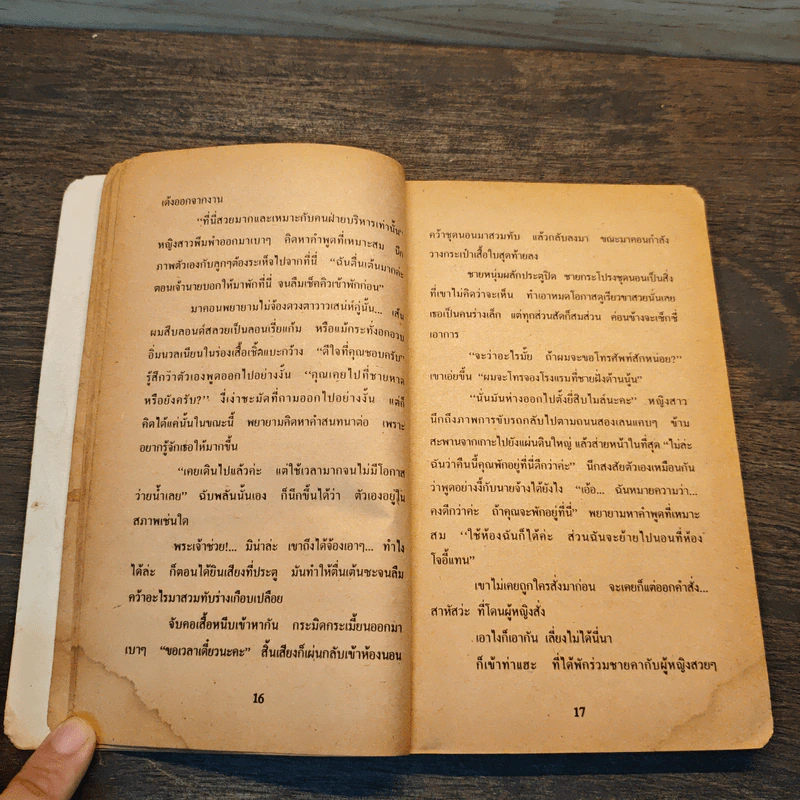 เด้งออกจากงาน
"ที่นี่สวยมากและเหมาะกับคนฝ่ายบริหารเท่านั้น"
หญิงสาวพึมพำออกมาเบาๆ คิดหาคำพูดที่เหมาะสม นึก
ภาพตัวเองกับลูกๆต้องระเห็จไปจากที่นี่ "ฉันตื่นเต้นมากค่ะ
ตอนเจ้านายบอกให้มาพักที่นี่ จนลืมเช็คคิวเข้าพักก่อน"
มาคอนพยายามไม่จ้องดวงตาวาวเสน่ห์คู่นั้น... เส้น
ผมสีบลอนด์สลวยเป็นลอนเรี่ยแก้ม หรือแม้กระทั่งอกอวบ
อิ่มนวลเนียนในร่องเสื้อเชิ้ตแบะกว้าง "ดีใจที่คุณชอบครับ"
รู้สึกว่าตัวเองพูดออกไปอย่างงั้น "คุณเคยไปที่ชายหาด
หรือยังครับ?" งี่เง่าชะมัดที่ถามออกไปอย่างงั้น แต่ก็
คิดได้แค่นั้นในขณะนี้ พยายามคิดหาคำสนทนาต่อ เพราะ
อยากรู้จักเธอให้มากขึ้น
"เคยเดินไปแล้วค่ะ แต่ใช้เวลามากจนไม่มีโอกาส
ว่ายน้ำเลย" ฉับพลันนั้นเอง ก็นึกขึ้นได้ว่า ตัวเองอยู่ใน
สภาพเช่นใด
พระเจ้าช่วย!... มิน่าล่ะ เขาถึงได้จ้องเอาๆ... ทำไง
ได้ล่ะ ก็ตอนได้ยินเสียงที่ประตู มันทำให้ตื่นเต้นซะจนลืม
คว้าอะไรมาสวมทับร่างเกือบเปลือย
จับคอเสื้อหนีบเข้าหากัน กระมิดกระเมี้ยนออกมา
เบาๆ "ขอเวลาเดี๋ยวนะคะ" สิ้นเสียงก็เผ่นกลับเข้าห้องนอน
16
คว้าชุดนอนมาสวมทับ แล้วกลับลงมา ขณะมาคอนกำลัง
วางกระเป๋าเสื้อใบสุดท้ายลง
ชายหนุ่มผลักประตูปิด ชายกระโปรงชุดนอนเป็นสิ่ง
ที่เขาไม่คิดว่าจะเห็น ทำเอาหมดโอกาสดูเรียวขาสวยนั้นเลย
เธอเป็นคนร่างเล็ก แต่ทุกส่วนสัดก็สมส่วน ค่อนข้างจะเซ็กซี่
เอาการ
"จะว่าอะไรมั้ย ถ้าผมจะขอโทรศัพท์สักหน่อย?"
เขาเอ่ยขึ้น "ผมจะโทรจองโรงแรมที่ชายฝั่งด้านนู้น"
"นั่นมันห่างออกไปตั้งยี่สิบไมล์นะคะ" หญิงสาว
นึกถึงภาพการขับรถกลับไปตามถนนสองเลนแคบๆ ข้าม
สะพานจากเกาะไปยังแผ่นดินใหญ่ แล้วส่ายหน้าในที่สุด "ไม่ล่ะ
ฉันว่าคืนนี้คุณพักอยู่ที่นี่ดีกว่าค่ะ" นึกสงสัยตัวเองเหมือนกัน
ว่าพูดอย่างงี้กับนายจ้างได้ยังไง "เอ้อ... ฉันหมายความว่า...
คงดีกว่าค่ะ ถ้าคุณจะพักอยู่ที่นี่" พยายามหาคำพูดที่เหมาะ
สม "ใช้ห้องฉันก็ได้ค่ะ ส่วนฉันจะย้ายไปนอนที่ห้อง
โจอี้แทน"
เขาไม่เคยถูกใครสั่งมาก่อน จะเคยก็แต่ออกคำสั่ง...
สาหัสว่ะ ที่โดนผู้หญิงสั่ง
เอาไงก็เอากัน เลี่ยงไม่ได้นี่นา
ก็เข้าท่าแฮะ ที่ได้พักร่วมชายคากับผู้หญิงสวยๆ
17